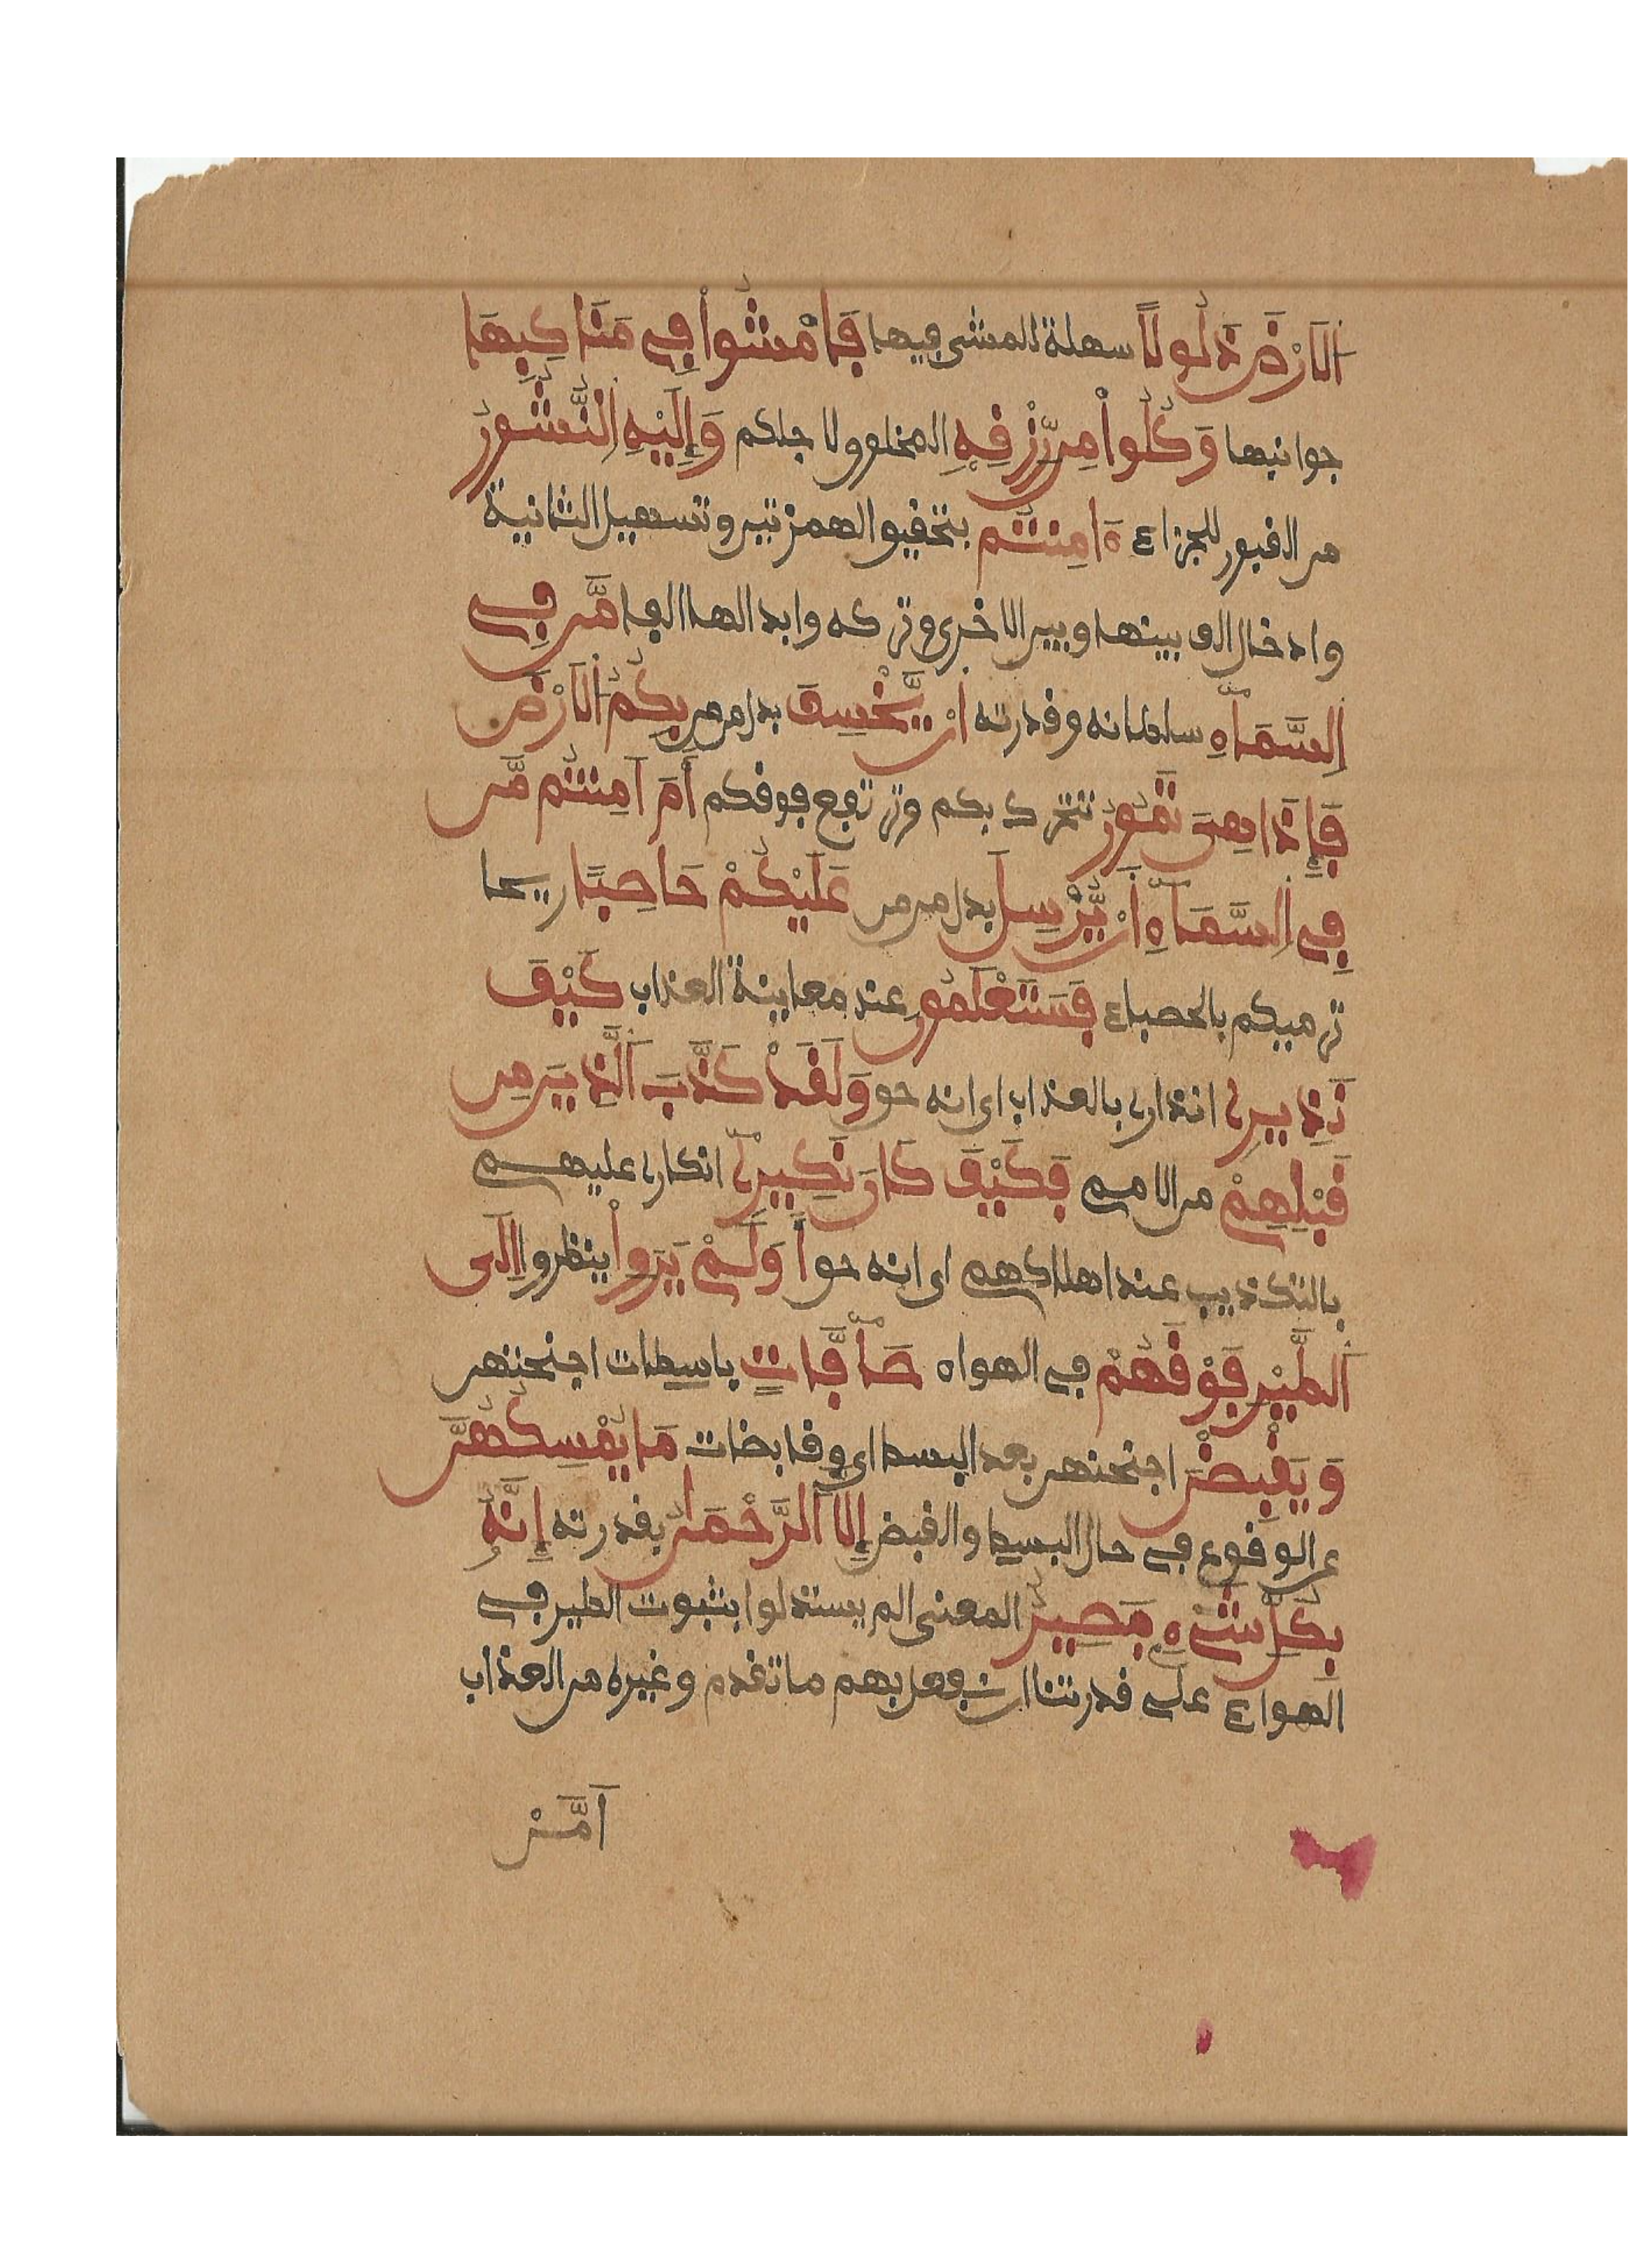 اَلَارْضَ ذَلُولًا سهلة للمشي فيها فَامْشُواْ فِے مَنَاكِبِهَا
جوانبها وَكُلُواْ مِن رِّزْقِهِ المخلوق لاجلكم وَإِلَيْهِ اِلنُّشُورُ
من القبور للجزاء ءَامِنتُم بتحقيق الهمزتين وتسهيل الثانية
وادخال الف بينها وبين الاخرى وتركه وابدالها الفا مَّن فِے
اِلسَّمَآءِ سلطانه وقدرته أَنْ يَّخْسِفَ بدل من من بِكُمُ اُلَارْضَ
فَإِذَا هِىَ تَمُورُ تتحرك بكم وترتفع فوقكم أَمَ اَمِنتُم مَّن
فِے اِلسَّمَآءِ أَنْ يُّرْسِلَ بدل من من عَلَيْكُمْ حَاصِبًا ريحا
ترميكم بالحصباء فَسَتَعْلَمُونَ عند معاينة العذاب كَيْفَ
نَذِيرِۦ انذارى بالعذاب اى انه حق وَلَقَدْ كَذَّبَ اَلَّذِينَ مِن
قَبْلِهِمْ من الامم فَكَيْفَ كَانَ نَكِيرِۦٓ انكارى عليهم
بالتكذيب عند اهلاكهم اى انه حق أَوَلَمْ يَرَوْاْ ينظروا اِلَى
اَلطَّيْرِ فَوْقَهُمْ فى الهواء صَآفَّاتٍ باسطات اجنحتهن
وَيَقْبِضْنَ اجنحتهن بعد البسط اى وقابضات مَا يُمْسِكُهُنَّ
عن الوقوع فى حال البسط والقبض إِلَّا اَلرَّحْمَٰنُ بقدرته إِنَّهُۥ
بِكُلِّ شَےْءٍ بَصِيرٌ المعنى الم يستدلوا بثبوت الطير فى
الهواء على قدرتنا ان نفعل بهم ما تقدم وغيره من العذاب
اَمَّنْ